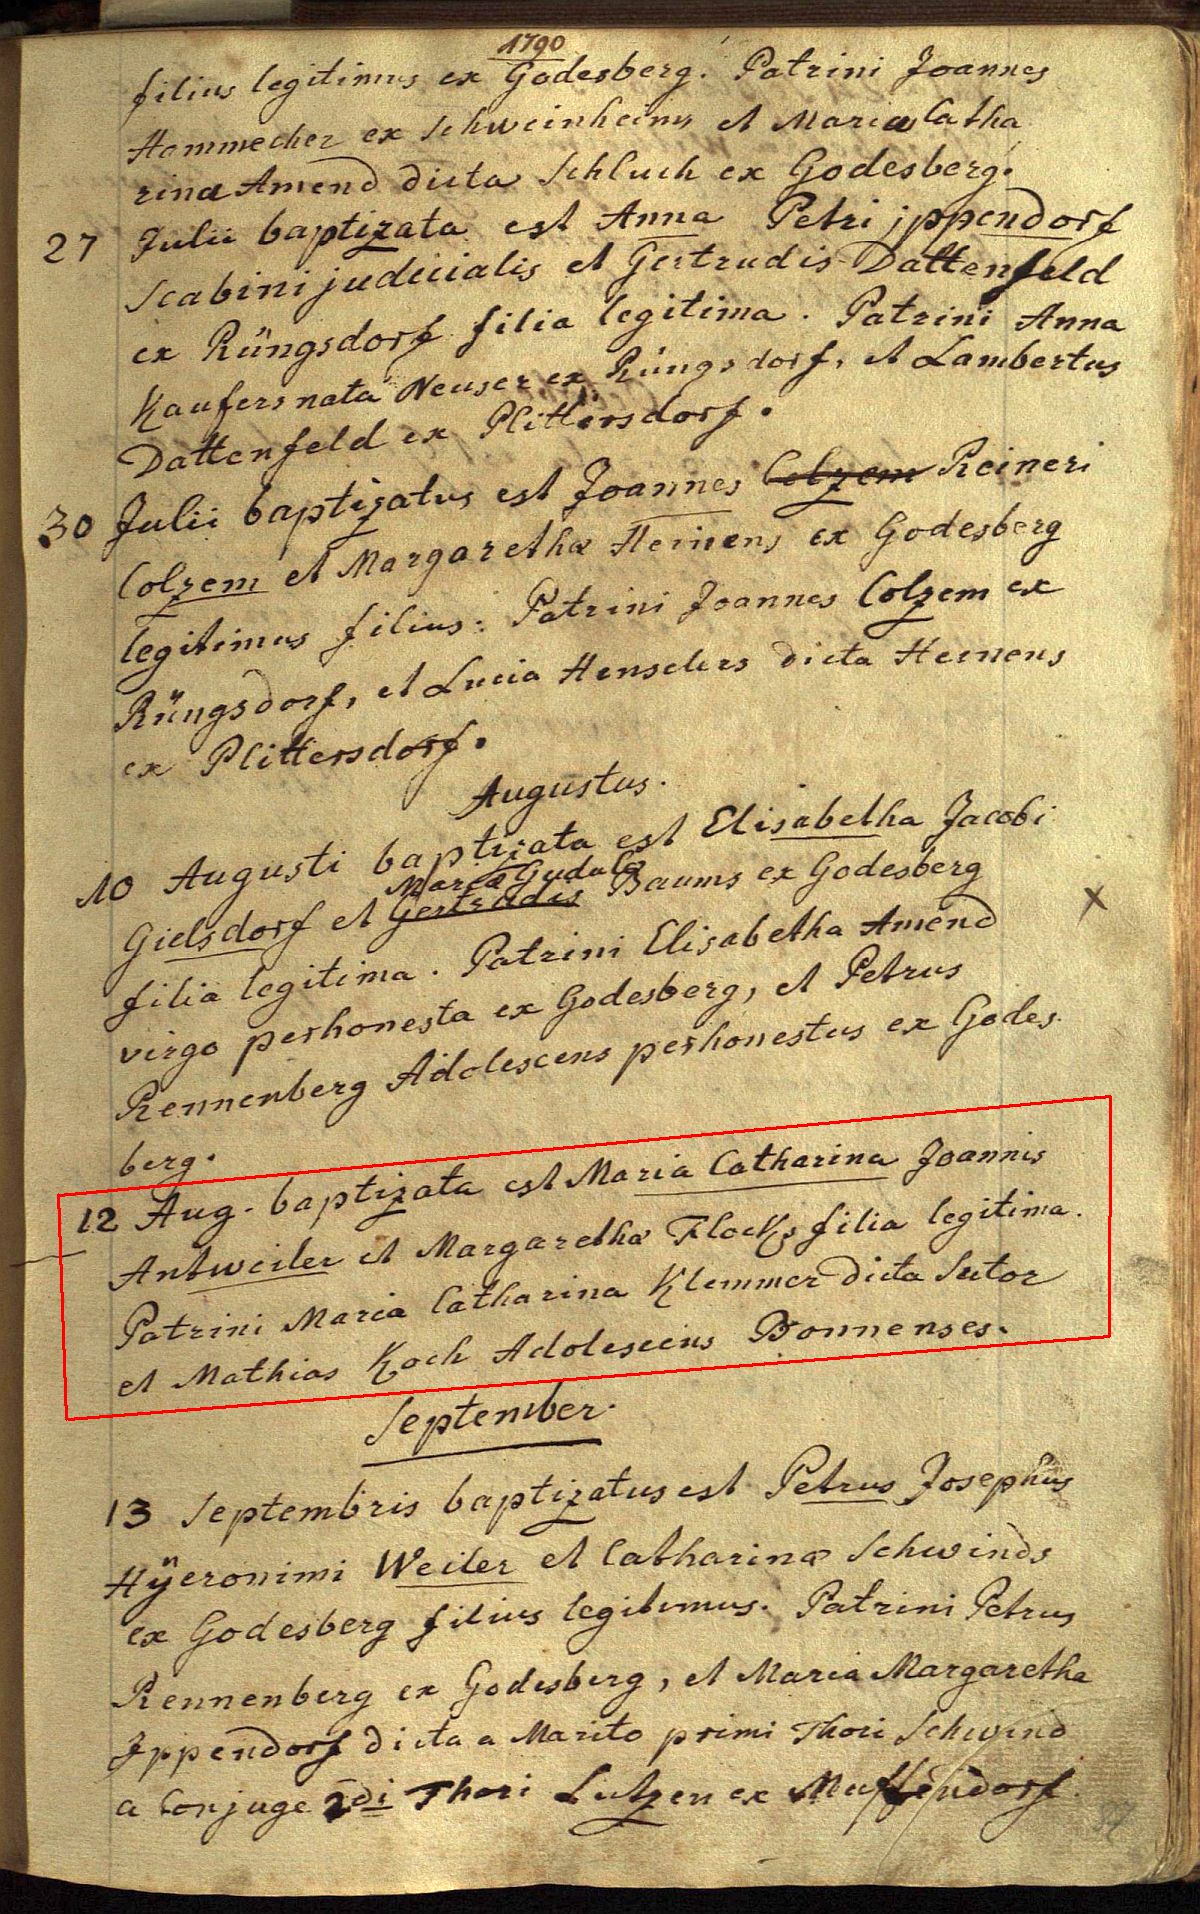 1790
filius legitimus ex Godesberg. Patrini Joannes
Hammecher ex Schweinheim et Maria Catha
rina Amend dicta Schluch ex Godesberg.
27 Julii baptizata est Anna Petri jppendorf
Scabini judicialis et Gertrudis Dattenfeld
ex Rüngsdorf filia legitima. Patrini Anna
Kaufers nata Neuser ex Rüngsdorf, et Lambertus
Dattenfeld ex Plittersdorf.
30 Julii baptizatus est Joannes Colzem Reineri
Colzem et Margarethæ Heinens ex Godesberg
legitimus filius. Patrini Joannes Colzem ex
Rüngsdorf, et Lucia Henselers dicta Heinens
ex Plittersdorf.
Augustus.
10 Augusti baptizata est Elisabetha Jacobi
Mariæ Gudulæ
Gielsdorf et Gertrudis Baums ex Godesberg
filia legitima. Patrini Elisabetha Amend
virgo perhonesta ex Godesberg, et Petrus
Rennenberg Adolescens perhonestus ex Godes
berg.
12 Aug. baptizata est Maria Catharina Joannis
Antweiler et Margarethæ Flocks filia legitima.
Patrini Maria Catharina Klemmer dicta Sutor
et Mathias Koch Adolescens Bonnenses.
September.
13 Septembris baptizatus est Petrus Josephus
Hÿeronimi Weiler et Catharinæ Schwinds
ex Godesberg filius legitimus. Patrini Petrus
Rennenberg ex Godesberg, et Maria Margaretha
Jppendorf dicta a Marito primi Thori Schwind
a Conjuge 2di Thori Lutzen ex Muffendorf.